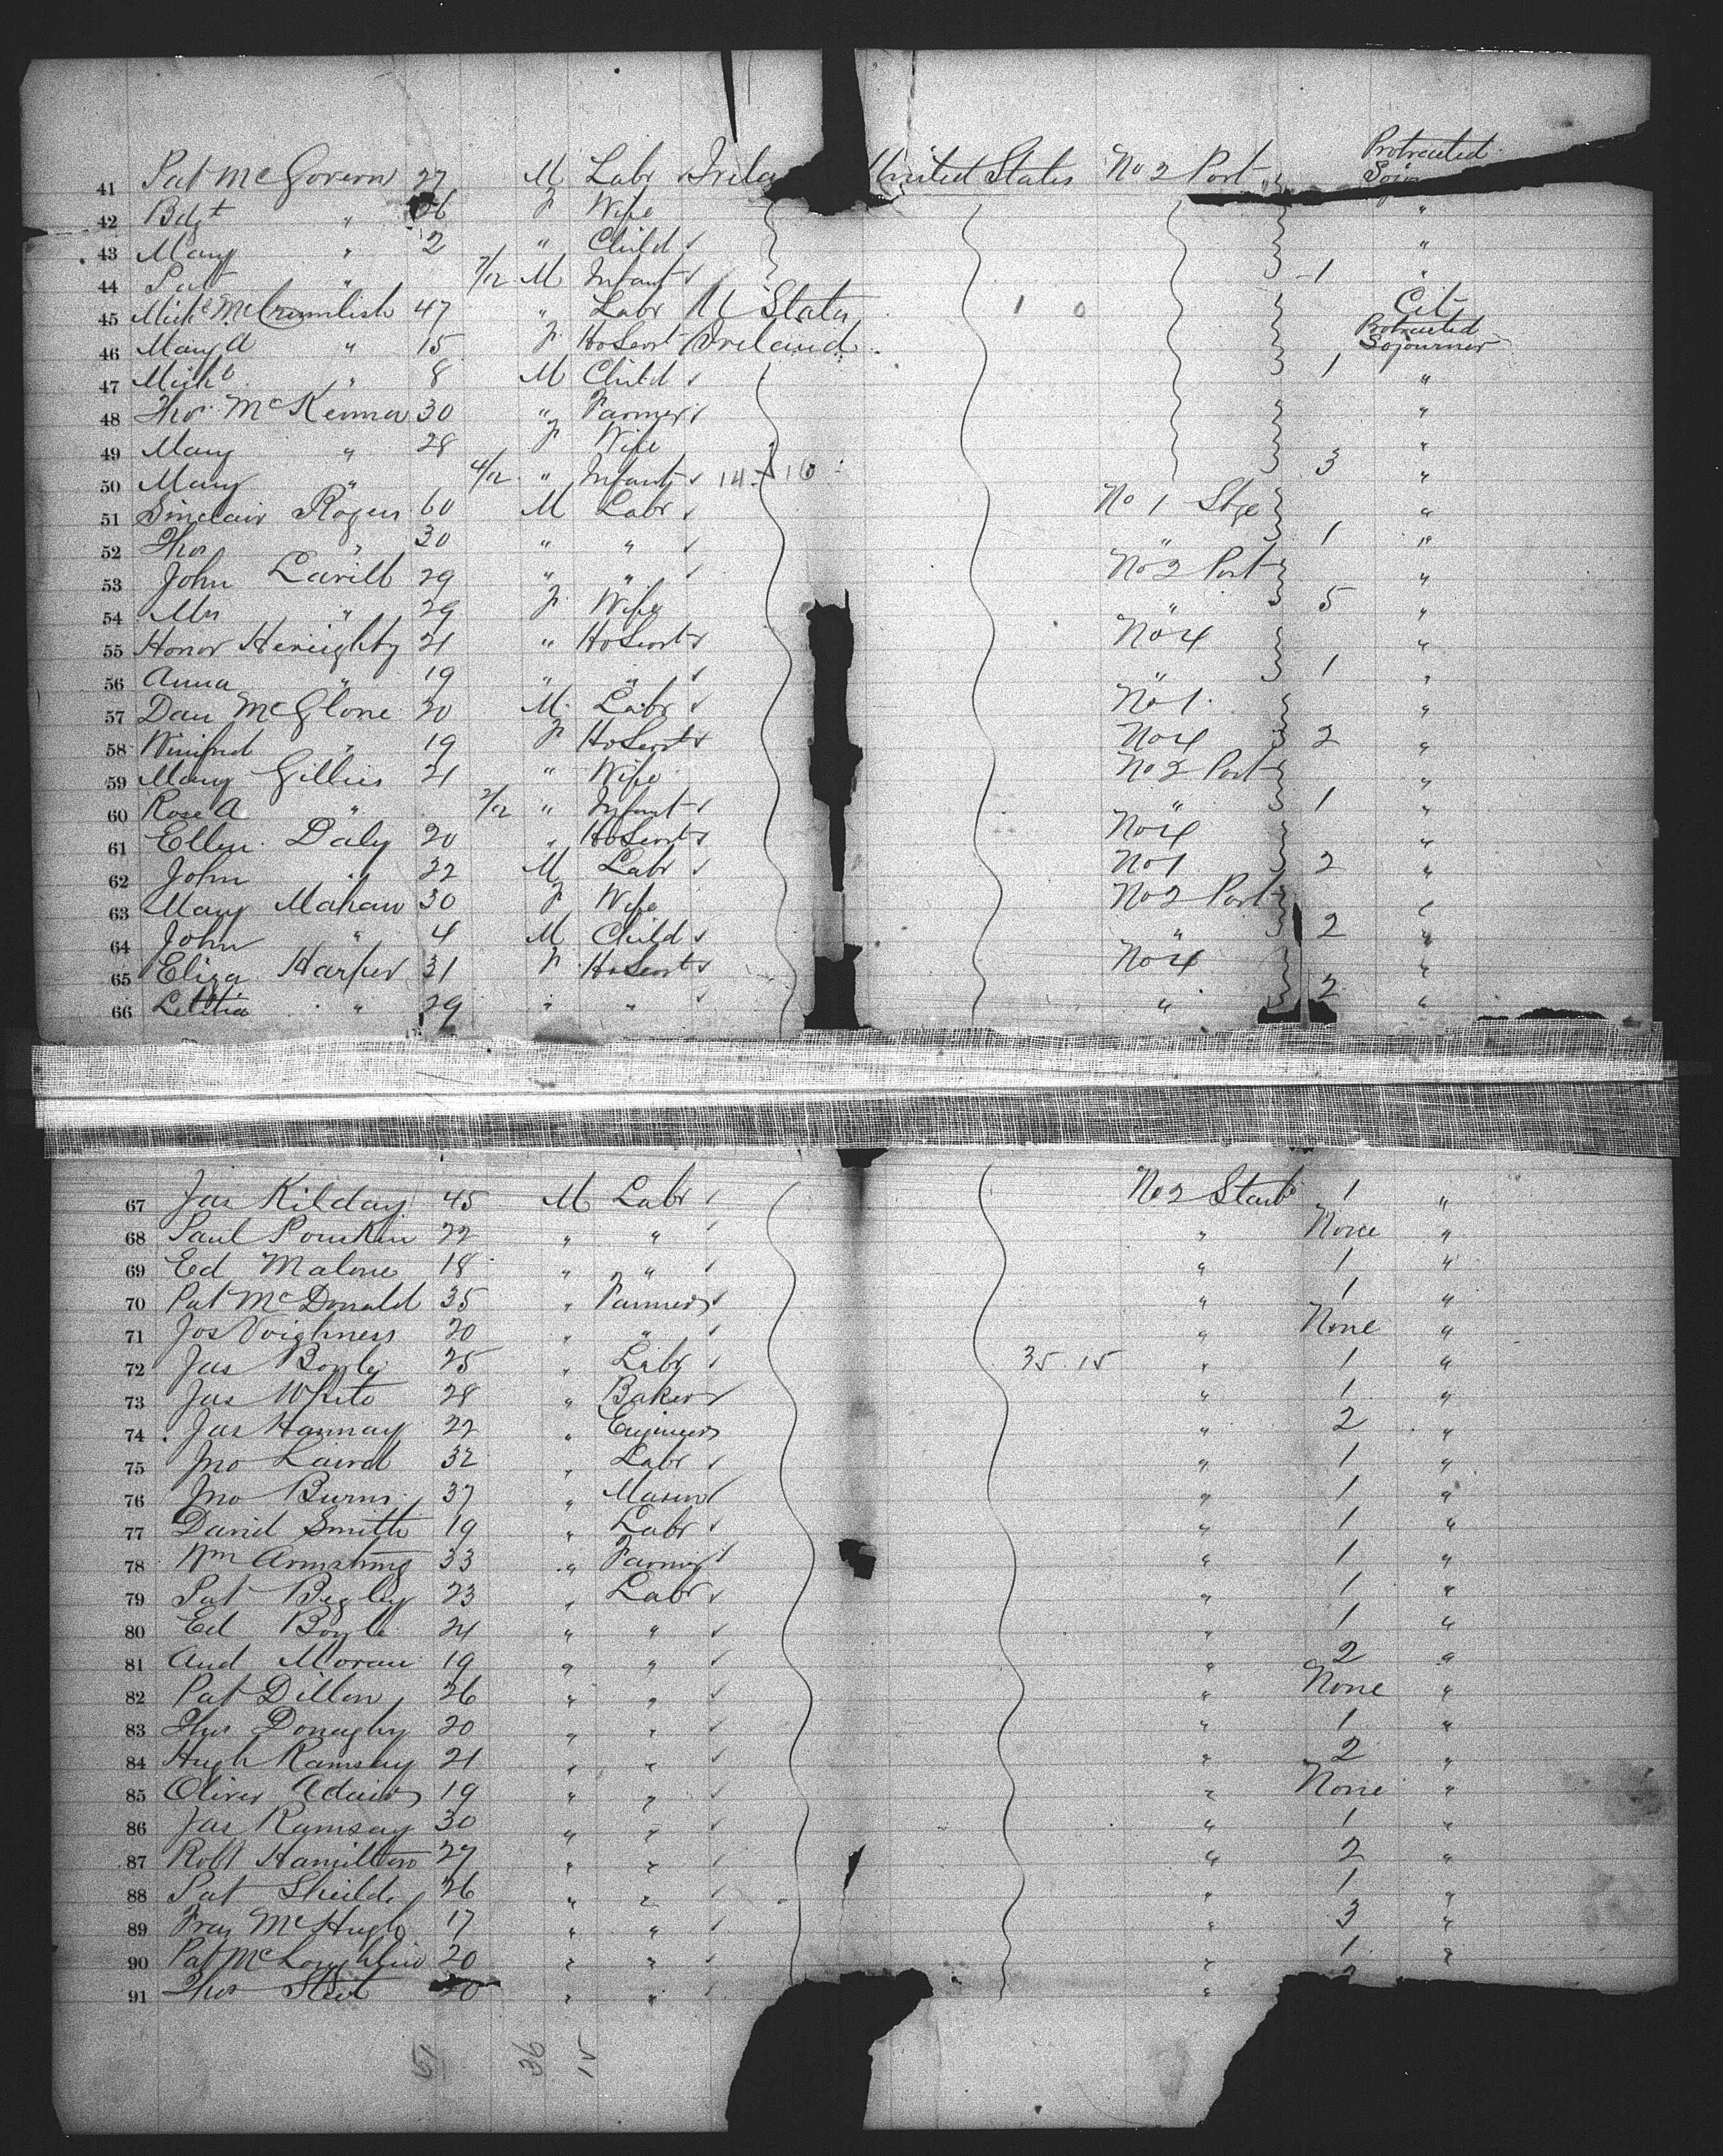 41 Pat McGovern 27 M Labr Irela United States No 2 Port Protracted Sojour
42 Bdgt " 26 F Wife "
43 Mary " 2 " Child "
44 Pat " 7/12 M Infant 1 "
45 Michl McCrumlish 47 " Labr U States 1 0 Cit
46 Mary A " 15 F HoServt Ireland Protracted Sojourner
47 Michl " 8 M Child 1 "
48 Thos McKenna 30 " Farmer "
49 Mary " 28 F Wife "
50 Mary " 4/12 " Infant 14 16 3 "
51 Sinclair Rogers 60 M Labr No 1 Stge "
52 Thos " 30 " " " 1 "
53 John Lavill 29 " " No 2 Port "
54 Mrs " 29 F Wife " 5 "
55 Honor Hereighty 21 " HoServt No 4 "
56 Anna " 19 " " " 1 "
57 Dan McGlone 20 M Labr No 1 "
58 Winifred " 19 F HoServt No 4 2 "
59 Mary Gillies 21 " Wife No 2 Port "
60 Rose A " 2/12 " Infant " 1 "
61 Ellen Daly 20 " HoServt No 4 "
62 John " 22 M Labr No 1 2 "
63 Mary Mahan 30 F Wife No 2 Port "
64 John " 4 M Child " 2 "
65 Eliza Harper 31 F HoServt No 4 "
66 Letitia " 29 " " " 2 "
67 Jas Kilday 45 M Labr No 2 Starb 1 "
68 Paul 22 " " " None "
69 Ed Malone 18 " " " 1 "
70 Pat McDonald 35 " Farmer " 1 "
71 Jos Voighness 20 " " " None "
72 Jas Boyle 25 " Labr 35 15 " 1 "
73 Jas White 28 " Baker " 1 "
74 Jas Hannay 22 " Engineer " 2 "
75 Jno Laird 32 " Labr " 1 "
76 Jno Burns 37 " Mason " 1 "
77 David Smith 19 " Labr " 1 "
78 Wm Armstrong 33 " Farmer " 1 "
79 Pat Begley 23 " Labr " 1 "
80 Ed Boyle 24 " " " 1 "
81 And Moran 19 " " " 2 "
82 Pat Dillon 26 " " " None "
83 Thos Donaghy 20 " " " 1 "
84 Hugh Ramsay 21 " " " 2 "
85 Oliver Adair 19 " " " None "
86 Jas Ramsay 30 " " " 1 "
87 Robt Hamilton 27 " " " 2 "
88 Pat Shields 26 " " " 1 "
89 Fras McHugh 17 " " " 3 "
90 Pat McLoughlin 20 " " " 1 "
91 Thos 20 " " "
51 36 15